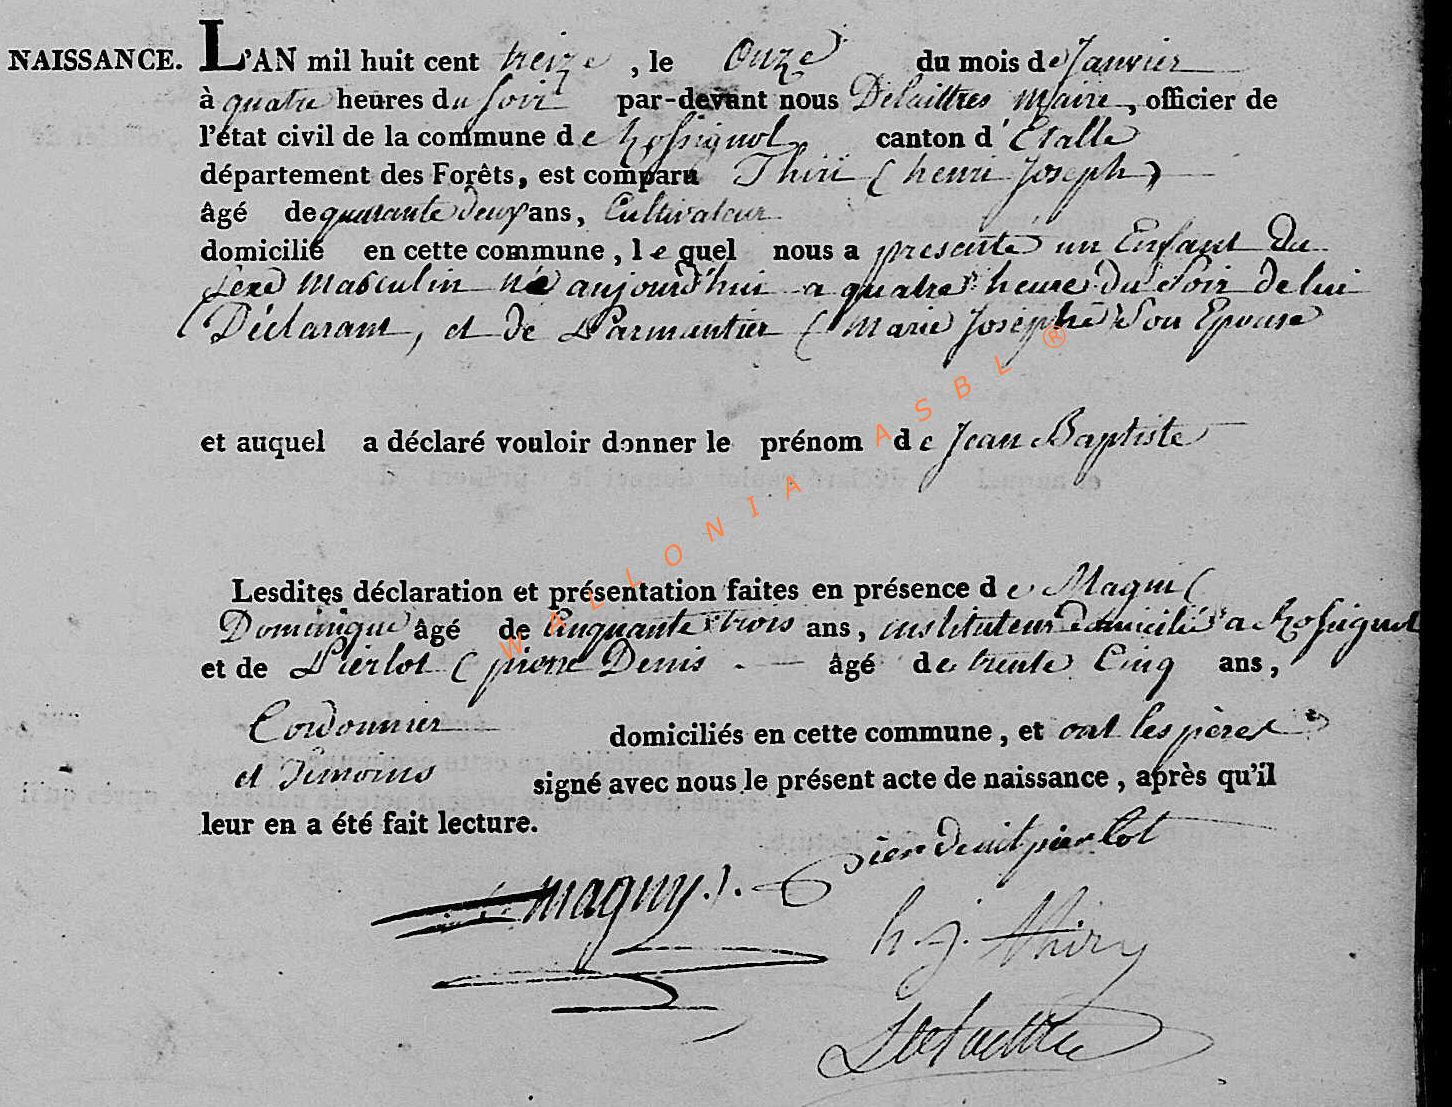 NAISSANCE. L'AN mil huit cent treize, le Onze du mois de Janvier
à quatre heures du soir par-devant nous Delaittres Maire, officier de
l'état civil de la commune de Rossignol canton d'Etalle
département des Forêts, est comparu Thiri (henri Joseph)
âgé de quarante deux ans, Cultivateur
domicilié en cette commune, lequel nous a presenté un Enfant Du
Sexe Masculin né aujourd'hui a quatre heure du Soir de lui
Déclarant, et de Parmentier (Marie Josephe) Son Epouse
et auquel a déclaré vouloir donner le prénom de Jean Baptiste
Lesdites déclaration et présentation faites en présence de Magni (
Dominique âgé de Cinquante trois ans, instituteur domicilié a Rossignol
et de Pierlot (pierre Denis âgé de trente Cinq ans,
Cordonnier domiciliés en cette commune, et ont les pères
et Temoins signé avec nous le présent acte de naissance, après qu'il
leur en a été fait lecture.
pier denit pierlot
magny
h j. thiry
Delaittre
WALLONIA ASBL ®